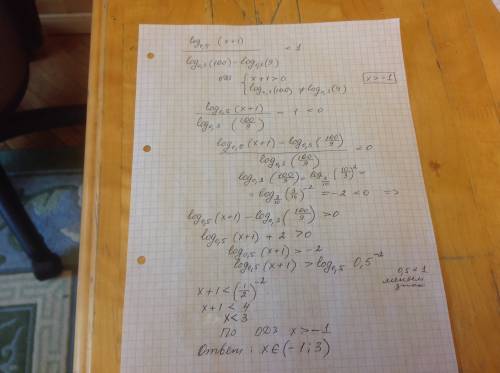 log₀,₅ (x+1)
log₀,₃(100) - log₀,₃(9) < 1
ОДЗ { x+1>0
log₀,₃(100) ≠ log₀,₃(9)
x>-1
log₀,₅(x+1) / log₀,₃(100/9) - 1 < 0
log₀,₅(x+1) - log₀,₃(100/9) / log₀,₃(100/9) < 0
log₀,₃(100/9) = log_{3/10}(10/3)² =
= log_{3/10}(3/10)⁻² = -2 < 0 =>
log₀,₅(x+1) - log₀,₃(100/9) > 0
log₀,₅(x+1) + 2 > 0
log₀,₅(x+1) > -2
log₀,₅(x+1) > log₀,₅ 0,5⁻²
0,5 < 1
меняем
знак
x+1 < (1/2)⁻²
x+1 < 4
x<3
ПО ОДЗ x>-1
Ответ: x∈(-1;3)